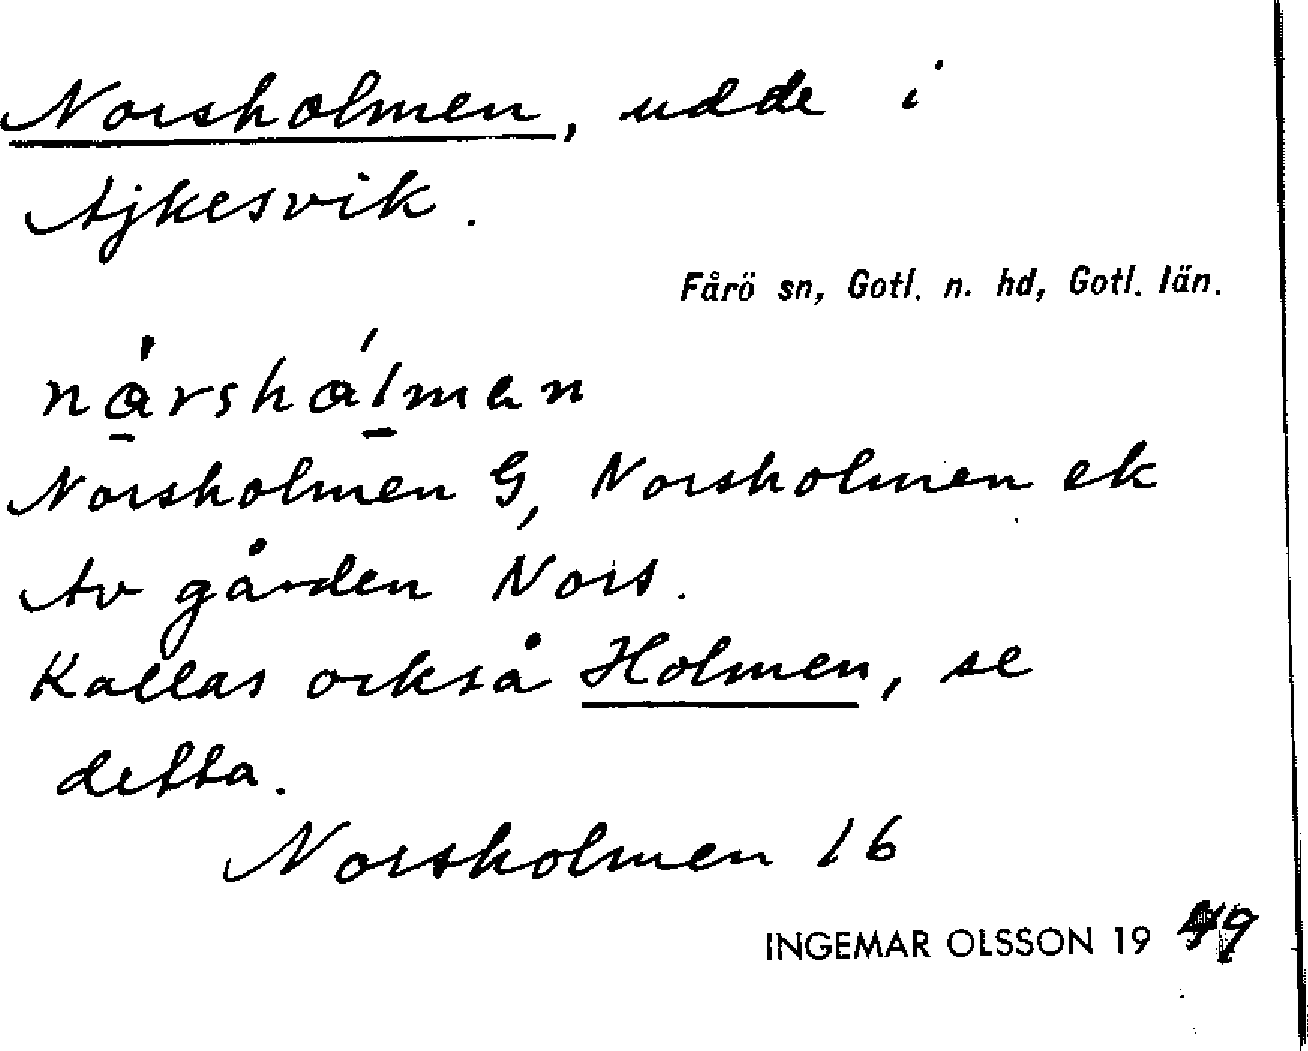 Norsholmen, udde i
Ajkesvik.
Fårö sn, Gotl. n. hd, Gotl. län.
nȧrshálmen
Norsholmen G, Norsholmen ek
Av gården Nors.
Kallas också Holmen, se
detta.
Norsholmen 16
INGEMAR OLSSON 1949